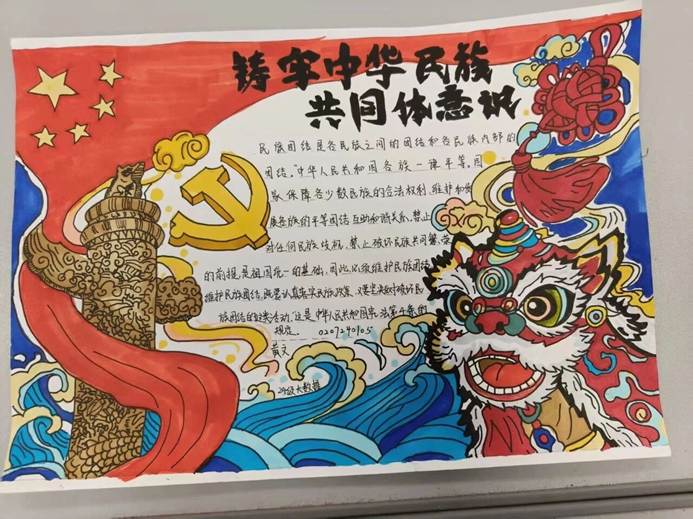 铸牢中华民族
共同体意识
民族团结是各民族之间的团结和各民族内部的
团结。"中华人民共和国各族一律平等。国
家保障各少数民族的合法权利,维护和发
展各族的平等团结互助和谐关系,禁止
对任何民族歧视,禁止破坏民族
的前提是祖国统一的基础,因此,必须维护民族团结
维护民族团结,就要认真落实民族政策,又要坚决反对破坏民
族团结的活动,这是中华人民共和国宪法第
规定。 0207240105
黄文
24级大数据